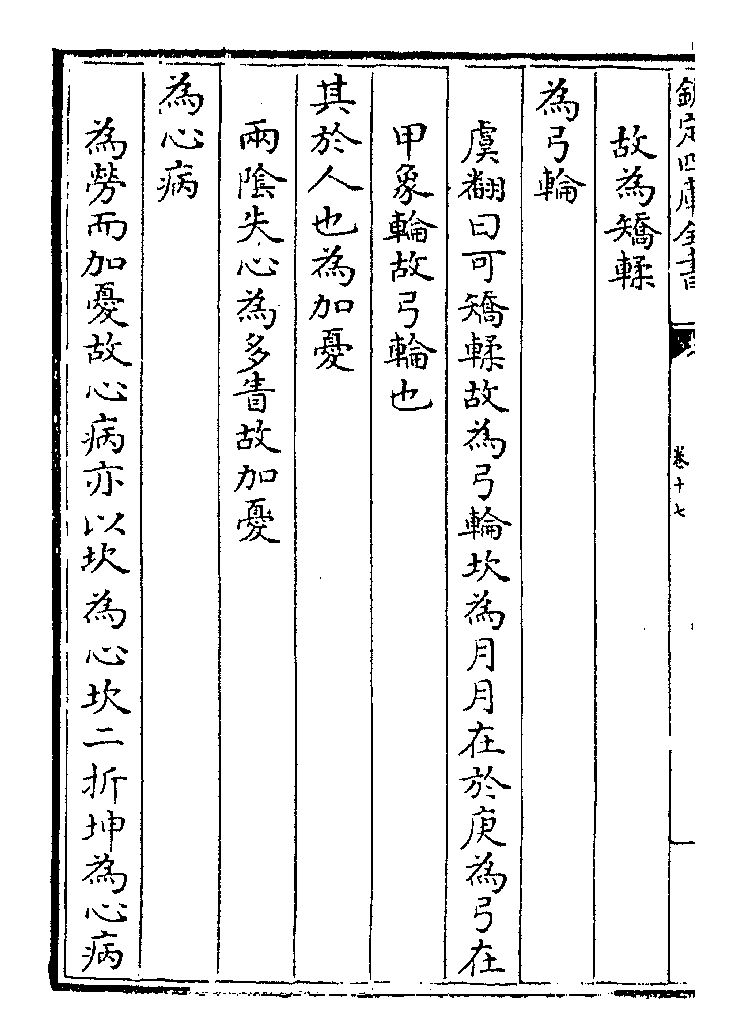 欽定四庫全書
卷十七
故為矯輮
為弓輪
虞翻曰可矯輮故為弓輪坎為月月在於庚為弓在
甲象輪故弓輪也
其於人也為加憂
兩陰失心為多眚故加憂
為心病
為勞而加憂故心病亦以坎為心坎二折坤為心病